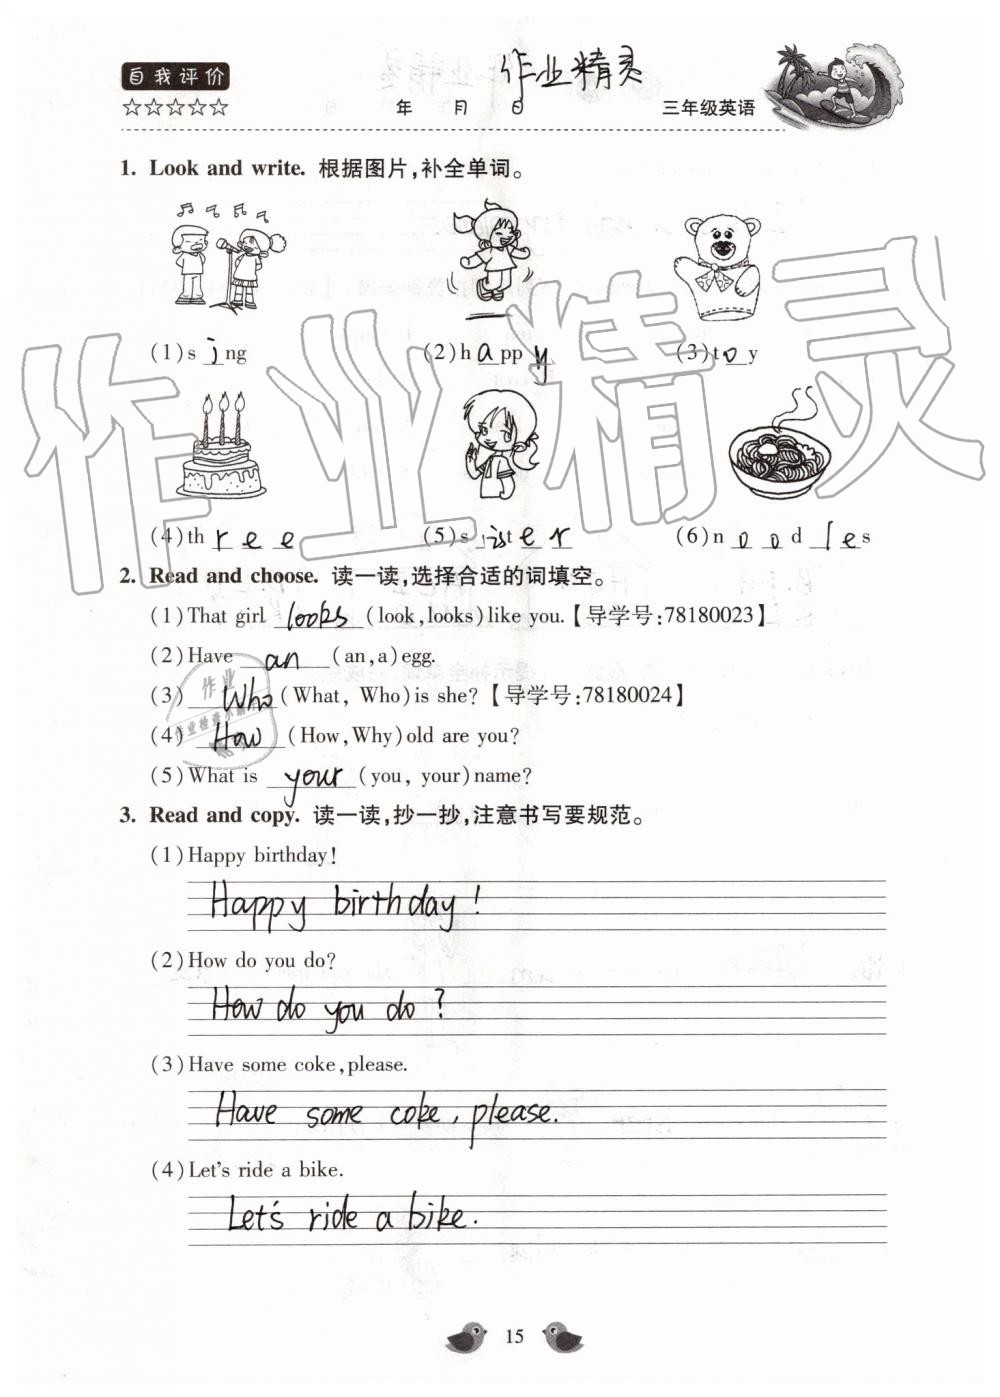 自我评价 作业精灵
☆☆☆☆☆ 年 月 日 三年级英语
1. Look and write. 根据图片,补全单词。
(1)s ing (2)h a pp y (3)t o y
(4)th r e e (5)s ist e r (6)n o o d l e s
2. Read and choose. 读一读,选择合适的词填空。
(1)That girl looks (look,looks)like you.【导学号:78180023】
(2)Have an (an,a)egg.
(3) Who (What, Who)is she?【导学号:78180024】
(4) How (How,Why)old are you?
(5)What is your (you, your)name?
3. Read and copy. 读一读,抄一抄,注意书写要规范。
(1)Happy birthday!
Happy birthday!
(2)How do you do?
How do you do?
(3)Have some coke,please.
Have some coke, please.
(4)Let's ride a bike.
Let's ride a bike.
15
作业精灵
作业